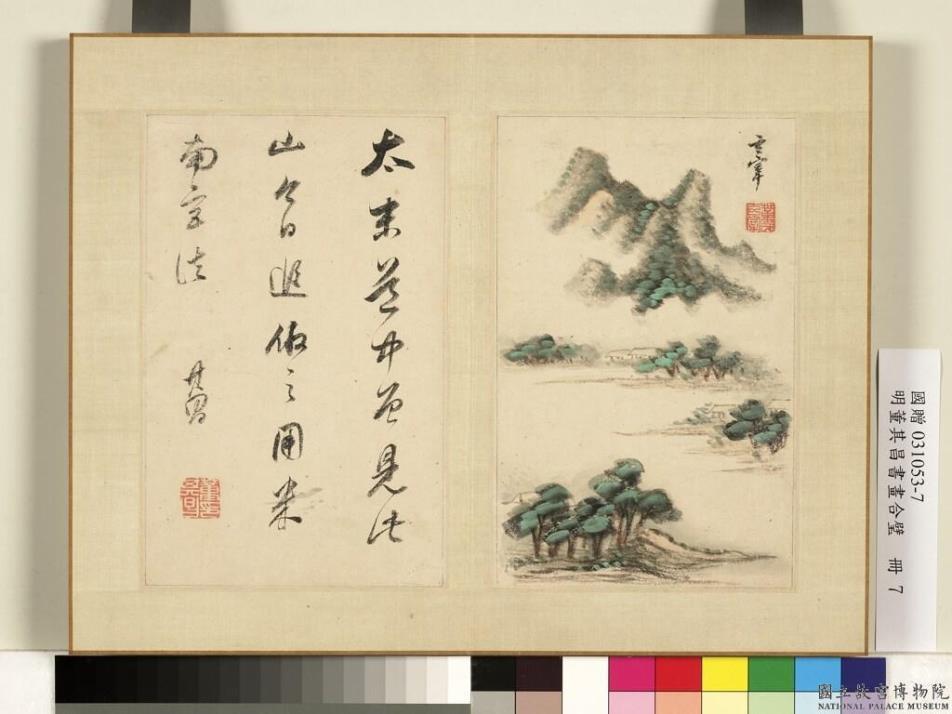 太末道中曾見此
山今日追倣之用米
南宮法
其昌
玄宰
國贈 031053-7
明董其昌書畫合璧 冊 7
國立故宮博物院
NATIONAL PALACE MUSEUM